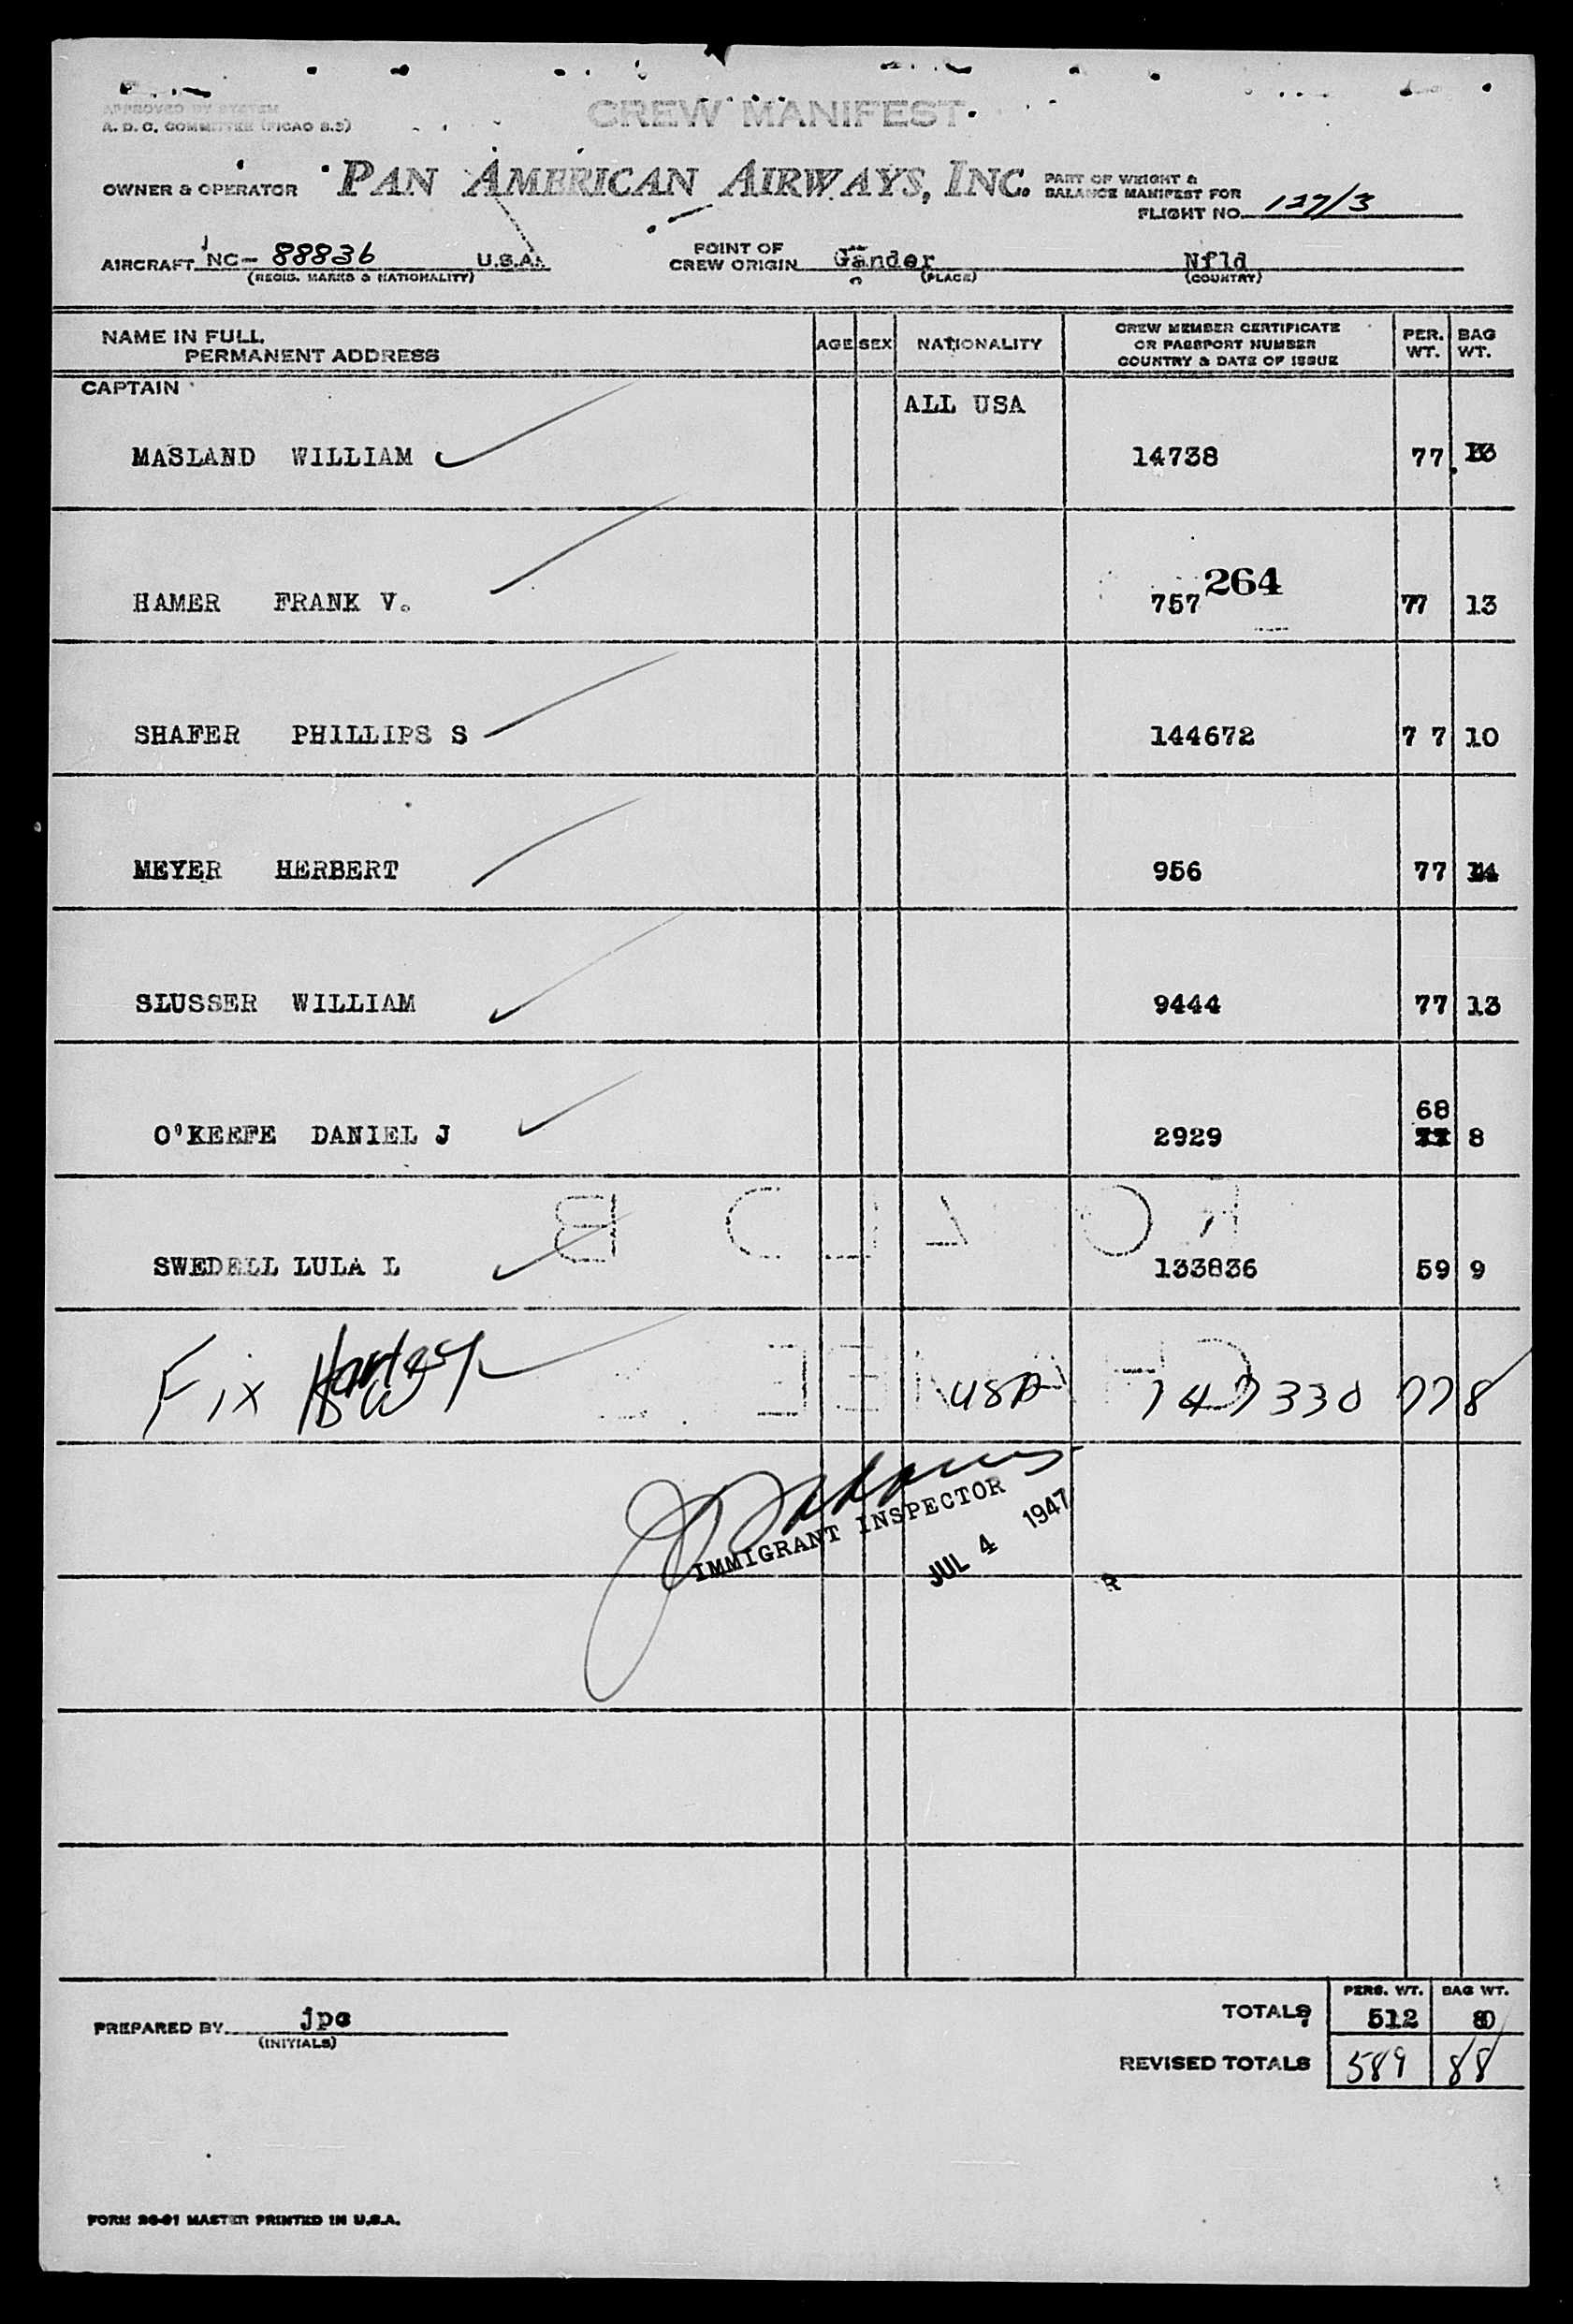 APPROVED BY SYSTEM
A. D. C. COMMITTEE (PICAO 8.3)
CREW MANIFEST
OWNER & OPERATOR PAN AMERICAN AIRWAYS, INC. PART OF WEIGHT &
BALANCE MANIFEST FOR
FLIGHT NO. 127/3
AIRCRAFT NC- 88836 U.S.A. POINT OF
CREW ORIGIN Gander Nfld
(REGIS. MARKS & NATIONALITY) (PLACE) (COUNTRY)
NAME IN FULL.
PERMANENT ADDRESS AGE SEX NATIONALITY CREW MEMBER CERTIFICATE
OR PASSPORT NUMBER
COUNTRY & DATE OF ISSUE PER.
WT. BAG
WT.
CAPTAIN
ALL USA
MASLAND WILLIAM 14738 77 13
264
HAMER FRANK V. 757 77 13
SHAFER PHILLIPS S 144672 7 7 10
MEYER HERBERT 956 77 14
SLUSSER WILLIAM 9444 77 13
68
O'KEEFE DANIEL J 2929 77 8
SWEDELL LULA L 133836 59 9
Fix Harley USA 147330 77 8
IMMIGRANT INSPECTOR
JUL 4 1947
R
PERS. WT. BAG WT.
TOTALS 512 80
PREPARED BY jpc
(INITIALS)
REVISED TOTALS 589 88
FORM 26-91 MASTER PRINTED IN U.S.A.